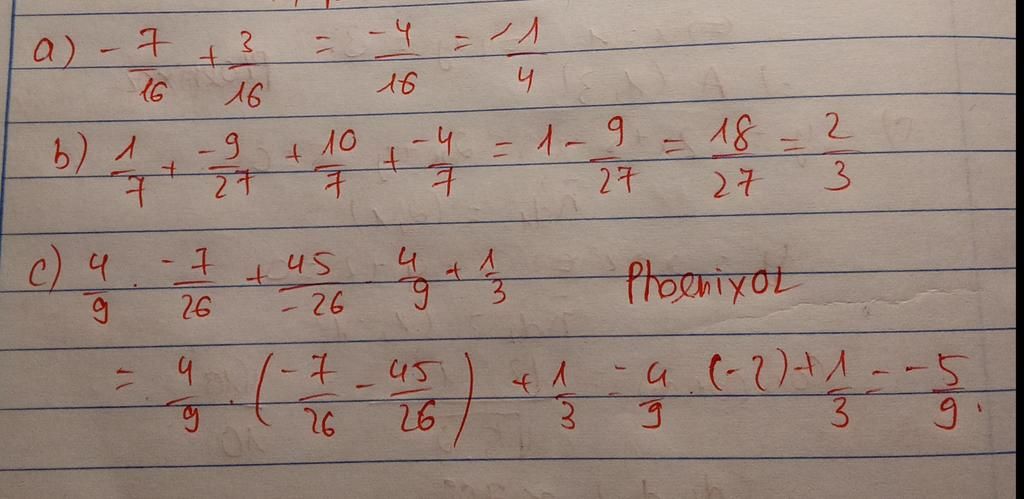 a) -7/16 + 3/16 = -4/16 = -1/4
b) 1/7 + -9/27 + 10/7 + -4/7 = 1 - 9/27 = 18/27 = 2/3
c) 4/9 . -7/26 + 45/-26 . 4/9 + 1/3 PhoenixOL
= 4/9 . (-7/26 - 45/26) + 1/3 = 4/9 . (-2) + 1/3 = -5/9.